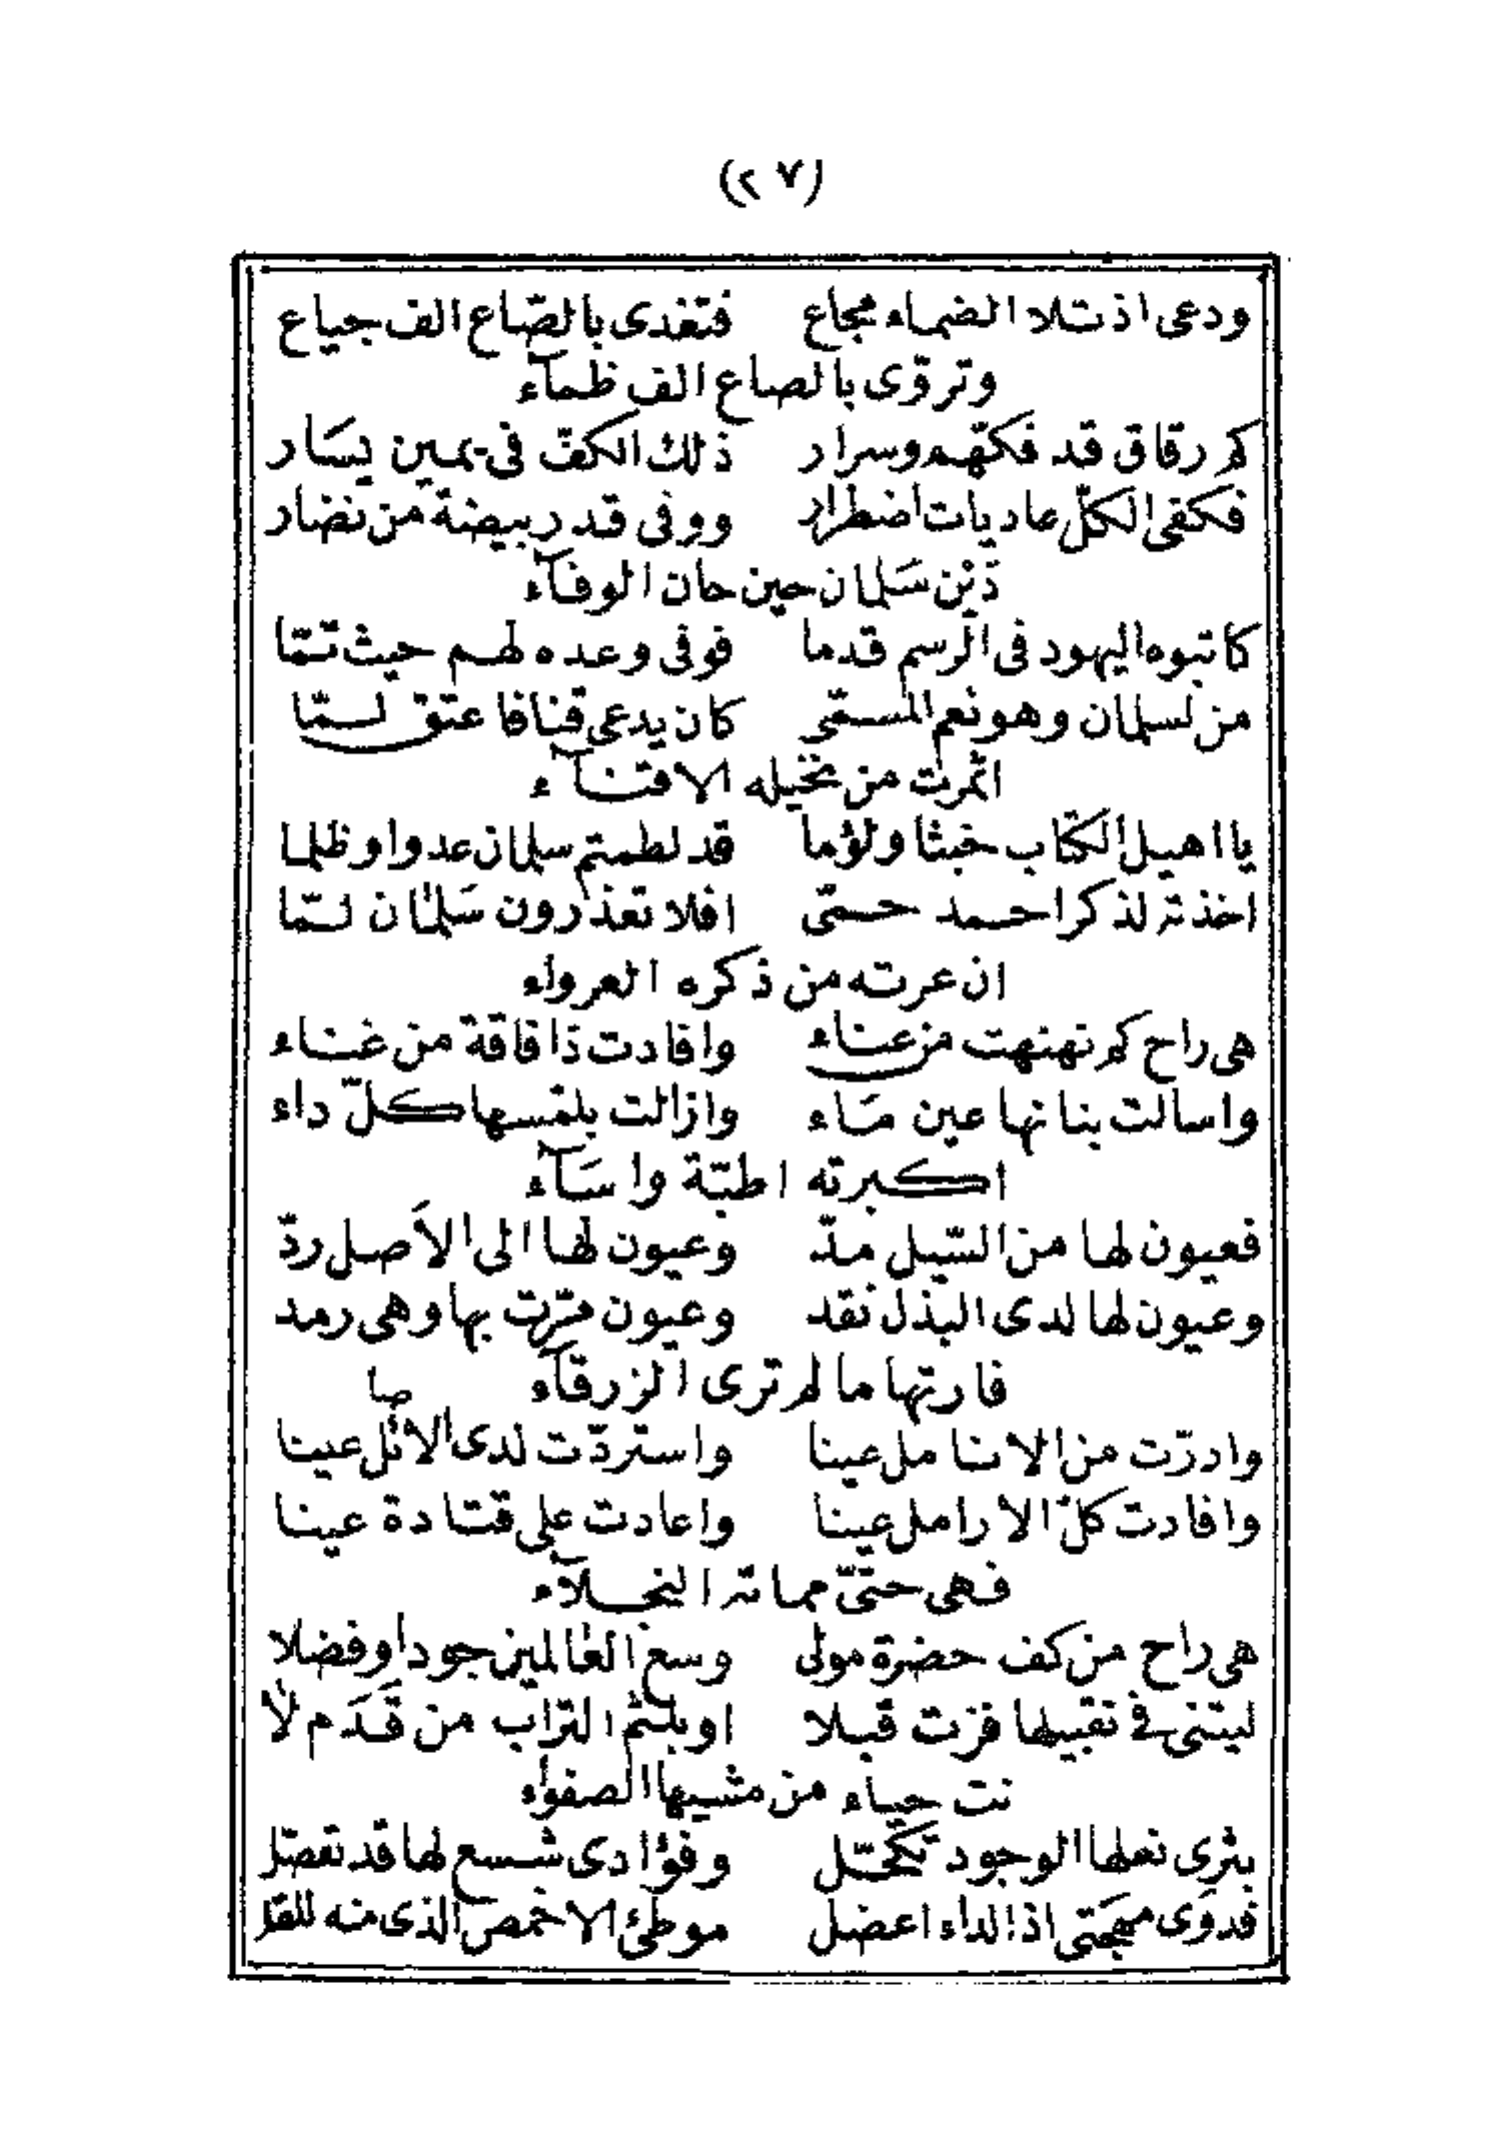 (٢٧)
ودعى اذ تلا الضماء مجاع فتغذى بالصّاع الف جياع
وتروّى بالصاع الف ظمآء
كم رقاق قد فكّهم وسرار ذلك الكفّ فى يمين يسَار
فكفى الكلّ عاديات اضطرار ووفى قدر بيضة من نضار
دَيْن سَلمان حين حان الوفآء
كاتبوه اليهود فى الرسم قدما فوفى وعده لهم حيث تمّا
من لسلمان وهو نعم المسمّى كان يدعى قنا فاعتق لمّا
اثمرت من نخيله الاقنآء
يا اهيل الكتاب خبثا ولؤما قد لطمتم سلمان عدوا وظلما
اخذته لذكر احمد حمّى افلا تعذرون سَلمان لمّا
ان عرته من ذكره العرواء
هى راح كم نهنهت من عناء وافادت ذا فاقة من غناء
واسالت بنانها عين مَاء وازالت بلمسها كلّ داء
اكبرته اطبّة واسَآء
فعيون لها من السّيل مدّ وعيون لها الى الاَصل ردّ
وعيون لها لدى البذل نقد وعيون مرّت بها وهى رمد
فارتها ما لم ترى الزرقآء
صا
وادرّت من الانامل عينا واستردّت لدى الاثل عينا
وافادت كلّ الارامل عينا واعادت على قتادة عينا
فهى حتىّ مماته النجلآء
هى راح من كف حضرة مولى وسع العالمين جودا وفضلا
ليتنى فى تقبيلها فزت قبلا او بلثم التراب من قَدَم لا
نت حياء من مشيها الصفواء
بثرى نعلها الوجود تكحّل وفؤادى شسع لها قد تفصّل
فدوَى مهجتى اذا الداء اعضل موطئ الاخمص الذى منه للقل